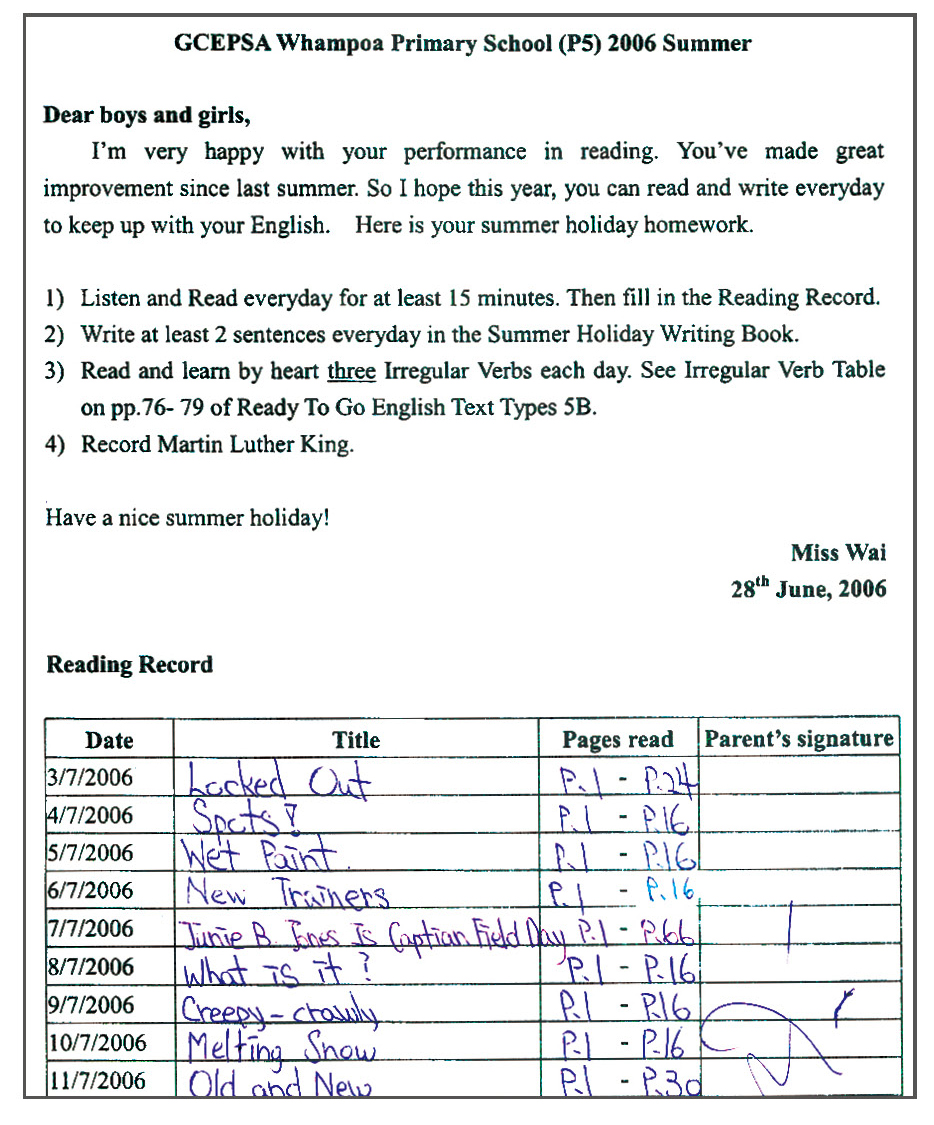 GCEPSA Whampoa Primary School (P5) 2006 Summer
Dear boys and girls,
I'm very happy with your performance in reading. You've made great
improvement since last summer. So I hope this year, you can read and write everyday
to keep up with your English. Here is your summer holiday homework.
1) Listen and Read everyday for at least 15 minutes. Then fill in the Reading Record.
2) Write at least 2 sentences everyday in the Summer Holiday Writing Book.
3) Read and learn by heart three Irregular Verbs each day. See Irregular Verb Table
on pp.76- 79 of Ready To Go English Text Types 5B.
4) Record Martin Luther King.
Have a nice summer holiday!
Miss Wai
28th June, 2006
Reading Record
Date Title Pages read Parent's signature
3/7/2006 Locked Out P.1 - P.24
4/7/2006 Spots! P.1 - P.16
5/7/2006 Wet Paint. P.1 - P.16
6/7/2006 New Trainers P.1 - P.16
7/7/2006 Junie B. Jones Is Captian Field Day P.1 - P.66
8/7/2006 What is it? P.1 - P.16
9/7/2006 Creepy-crawly P.1 - P.16
10/7/2006 Melting Snow P.1 - P.16
11/7/2006 Old and New P.1 - P.30